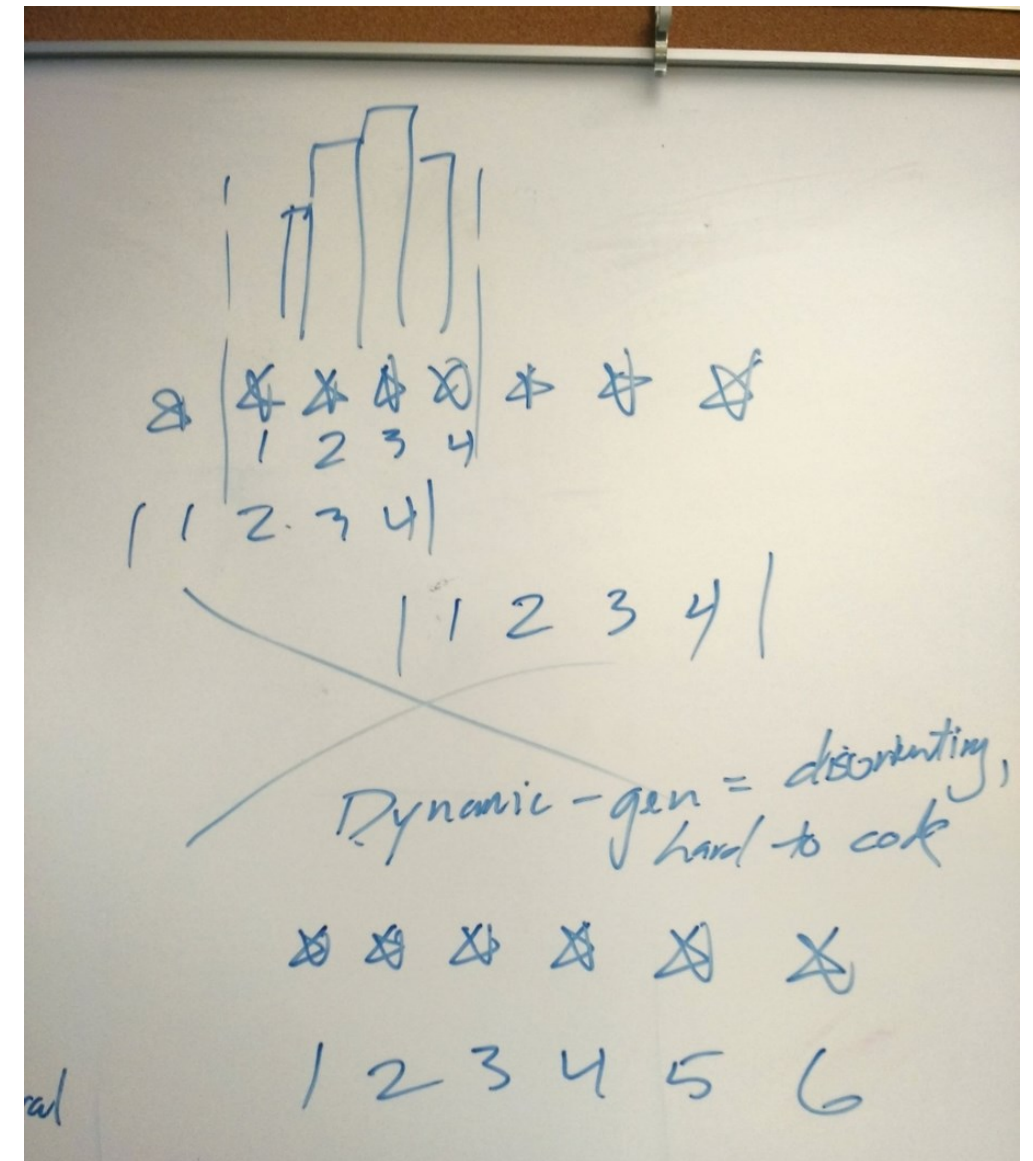 1 2 3 4
| 1 2 3 4 |
| 1 2 3 4 |
Dynamic-gen = disorienting,
hard to code
1 2 3 4 5 6